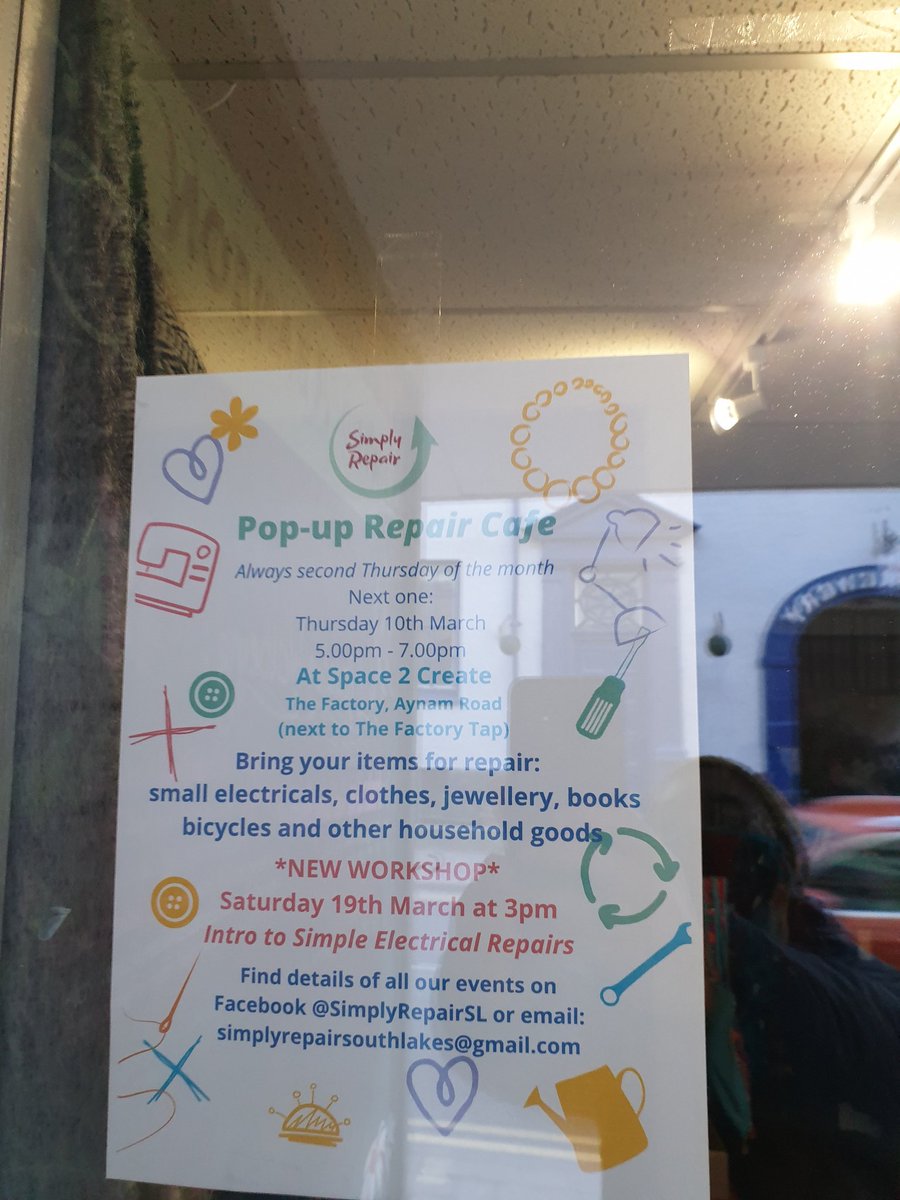 Simply
Repair
Pop-up Repair Cafe
Always second Thursday of the month
Next one:
Thursday 10th March
5.00pm - 7.00pm
At Space 2 Create
The Factory, Aynam Road
(next to The Factory Tap)
Bring your items for repair:
small electricals, clothes, jewellery, books
bicycles and other household goods
*NEW WORKSHOP*
Saturday 19th March at 3pm
Intro to Simple Electrical Repairs
Find details of all our events on
Facebook @SimplyRepairSL or email:
simplyrepairsouthlakes@gmail.com